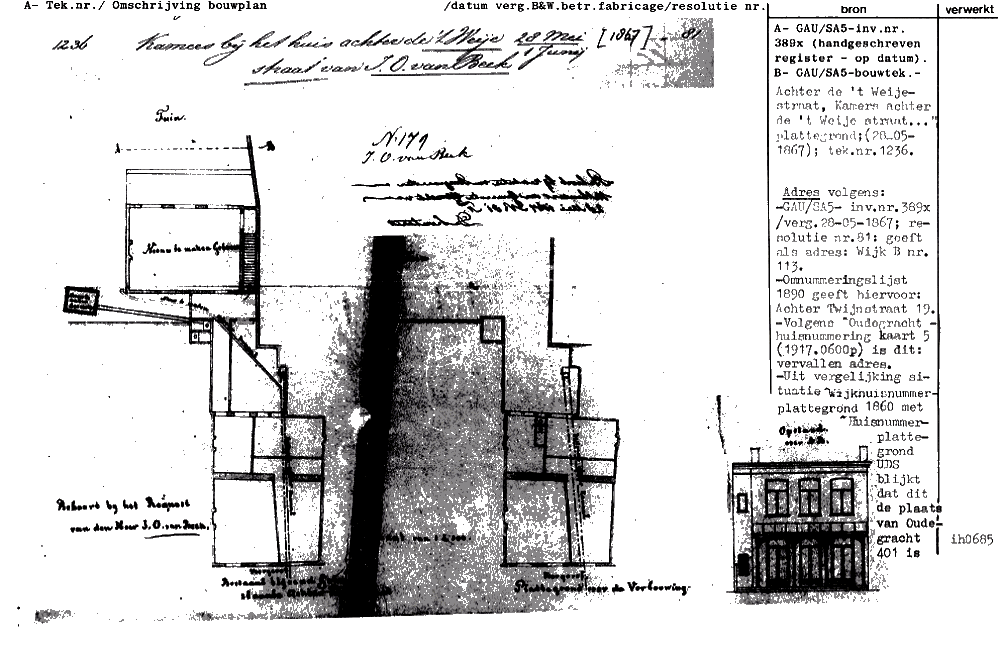 A- Tek.nr./ Omschrijving bouwplan /datum verg.B&W.betr.fabricage/resolutie nr. bron verwerkt
1236 Kamers bij het huis achter de 't Weije 28 Mei [1867] - 81
1 Junij
straat van J. O. van Beek
A- GAU/SA5-inv.nr.
389x (handgeschreven
register - op datum).
B- GAU/SA5-bouwtek.-
Achter de 't Weije-
straat, Kamers achter
de 't Weije straat..."
plattegrond;(28-05-
1867); tek.nr.1236.
Adres volgens:
-GAU/SA5- inv.nr.389x
/verg.28-05-1867; re-
solutie nr.81: geeft
als adres: Wijk B nr.
113.
-Omnummeringslijst
1890 geeft hiervoor:
Achter Twijnstraat 19.
-Volgens "Oudegracht -
huisnummering kaart 5
(1917.0600p) is dit:
vervallen adres.
-Uit vergelijking si-
tuatie Wijkhuisnummer-
plattegrond 1860 met
"Huisnummer-
platte-
grond
UDS
blijkt
dat dit
de plaats
van Oude-
gracht
401 is
ih0685
Tuin.
A B
No 179
J. O. van Beek
Nieuw te maken
Behoort bij het Request
van den Heer J. O. van Beek.
Plattegrond voor de Verbouwing.
Opstand